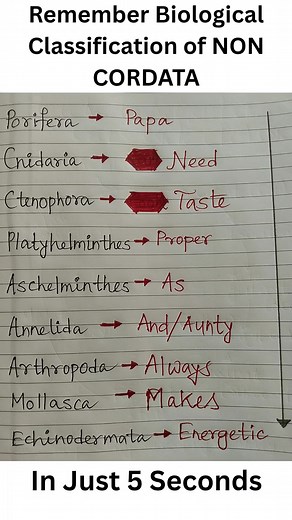 Remember Biological
Classification of NON
CORDATA
Porifera → Papa
Cnidaria → Need
Ctenophora → Taste
Platyhelminthes → Proper
Aschelminthes → As
Annelida → And/Aunty
Arthropoda → Always
Mollasca → Makes
Echinodermata → Energetic
In Just 5 Seconds